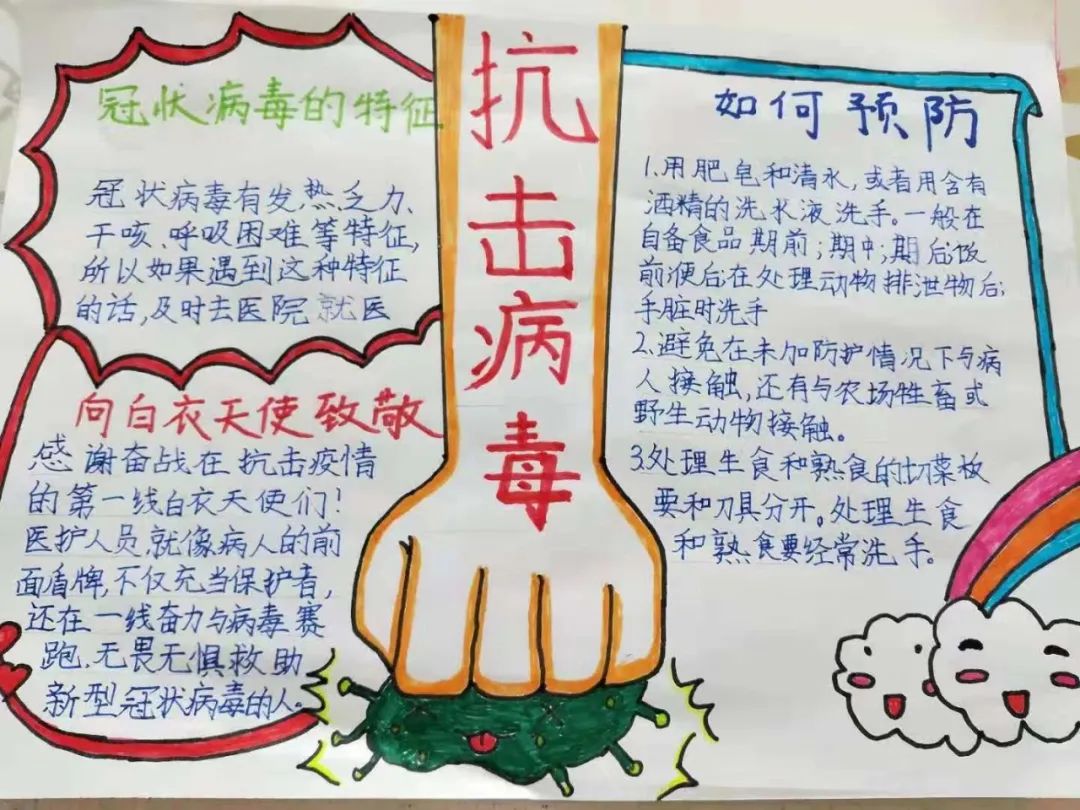 冠状病毒的特征
冠状病毒有发热乏力、
干咳、呼吸困难等特征,
所以如果遇到这种特征
的话,及时去医院就医
向白衣天使致敬
感谢奋战在抗击疫情
的第一线白衣天使们!
医护人员,就像病人的前
面盾牌,不仅充当保护者,
还在一线奋力与病毒赛
跑.无畏无惧救助
新型冠状病毒的人。
抗
击
病
毒
如何预防
1.用肥皂和清水,或者用含有
酒精的洗水液洗手。一般在
自备食品期前;期中;期后;饭
前便后;在处理动物排泄物后;
手脏时洗手
2.避免在未加防护情况下与病
人接触,还有与农场牲畜或
野生动物接触。
3.处理生食和熟食的切菜板
要和刀具分开。处理生食
和熟食要经常洗手。